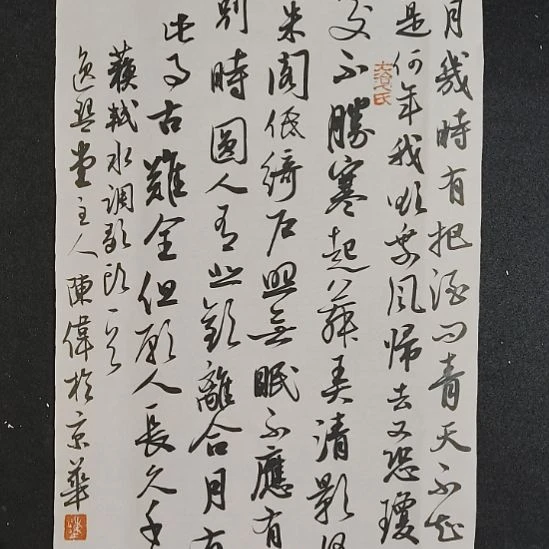 月幾時有把酒问青天不知
是何年我欲乘風歸去又恐瓊
处不勝寒起舞弄清影何
朱阁低绮户照無眠不應有
别時圓人有悲歡離合月有
此事古難全但願人長久千
蘇軾水調歌頭一首
逸堂主人陳偉於京華